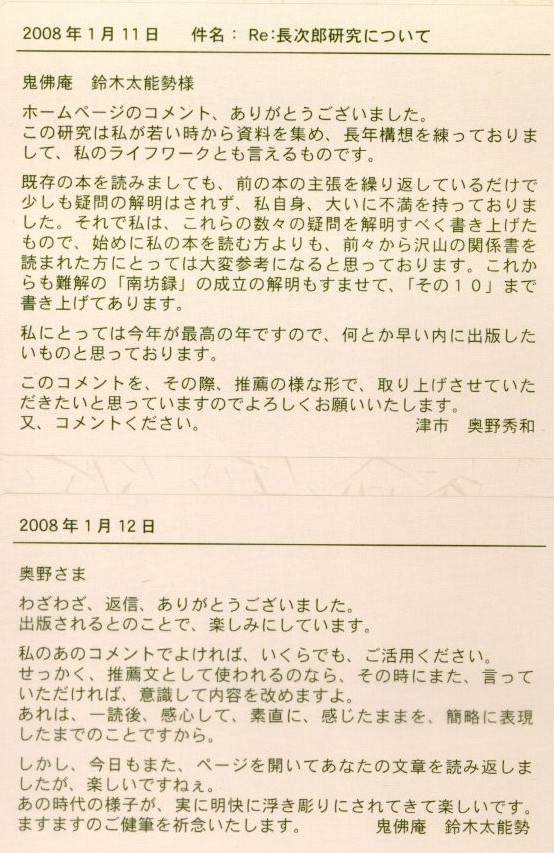 2008年1月11日　件名： Re:長次郎研究について
鬼佛庵　鈴木太能勢様
ホームページのコメント、ありがとうございました。
この研究は私が若い時から資料を集め、長年構想を練っておりま
して、私のライフワークとも言えるものです。
既存の本を読みましても、前の本の主張を繰り返しているだけで
少しも疑問の解明はされず、私自身、大いに不満を持っておりま
した。それで私は、これらの数々の疑問を解明すべく書き上げた
もので、始めに私の本を読む方よりも、前々から沢山の関係書を
読まれた方にとっては大変参考になると思っております。これか
らも難解の「南坊録」の成立の解明もすませて、「その１０」まで
書き上げてあります。
私にとっては今年が最高の年ですので、何とか早い内に出版した
いものと思っております。
このコメントを、その際、推薦の様な形で、取り上げさせていた
だきたいと思っていますのでよろしくお願いいたします。
又、コメントください。　津市　奥野秀和
2008年1月12日
奥野さま
わざわざ、返信、ありがとうございました。
出版されるとのことで、楽しみにしています。
私のあのコメントでよければ、いくらでも、ご活用ください。
せっかく、推薦文として使われるのなら、その時にまた、言って
いただければ、意識して内容を改めますよ。
あれは、一読後、感心して、素直に、感じたままを、簡略に表現
したまでのことですから。
しかし、今日もまた、ページを開いてあなたの文章を読み返しま
したが、楽しいですねぇ。
あの時代の様子が、実に明快に浮き彫りにされてきて楽しいです。
ますますのご健筆を祈念いたします。　鬼佛庵　鈴木太能勢